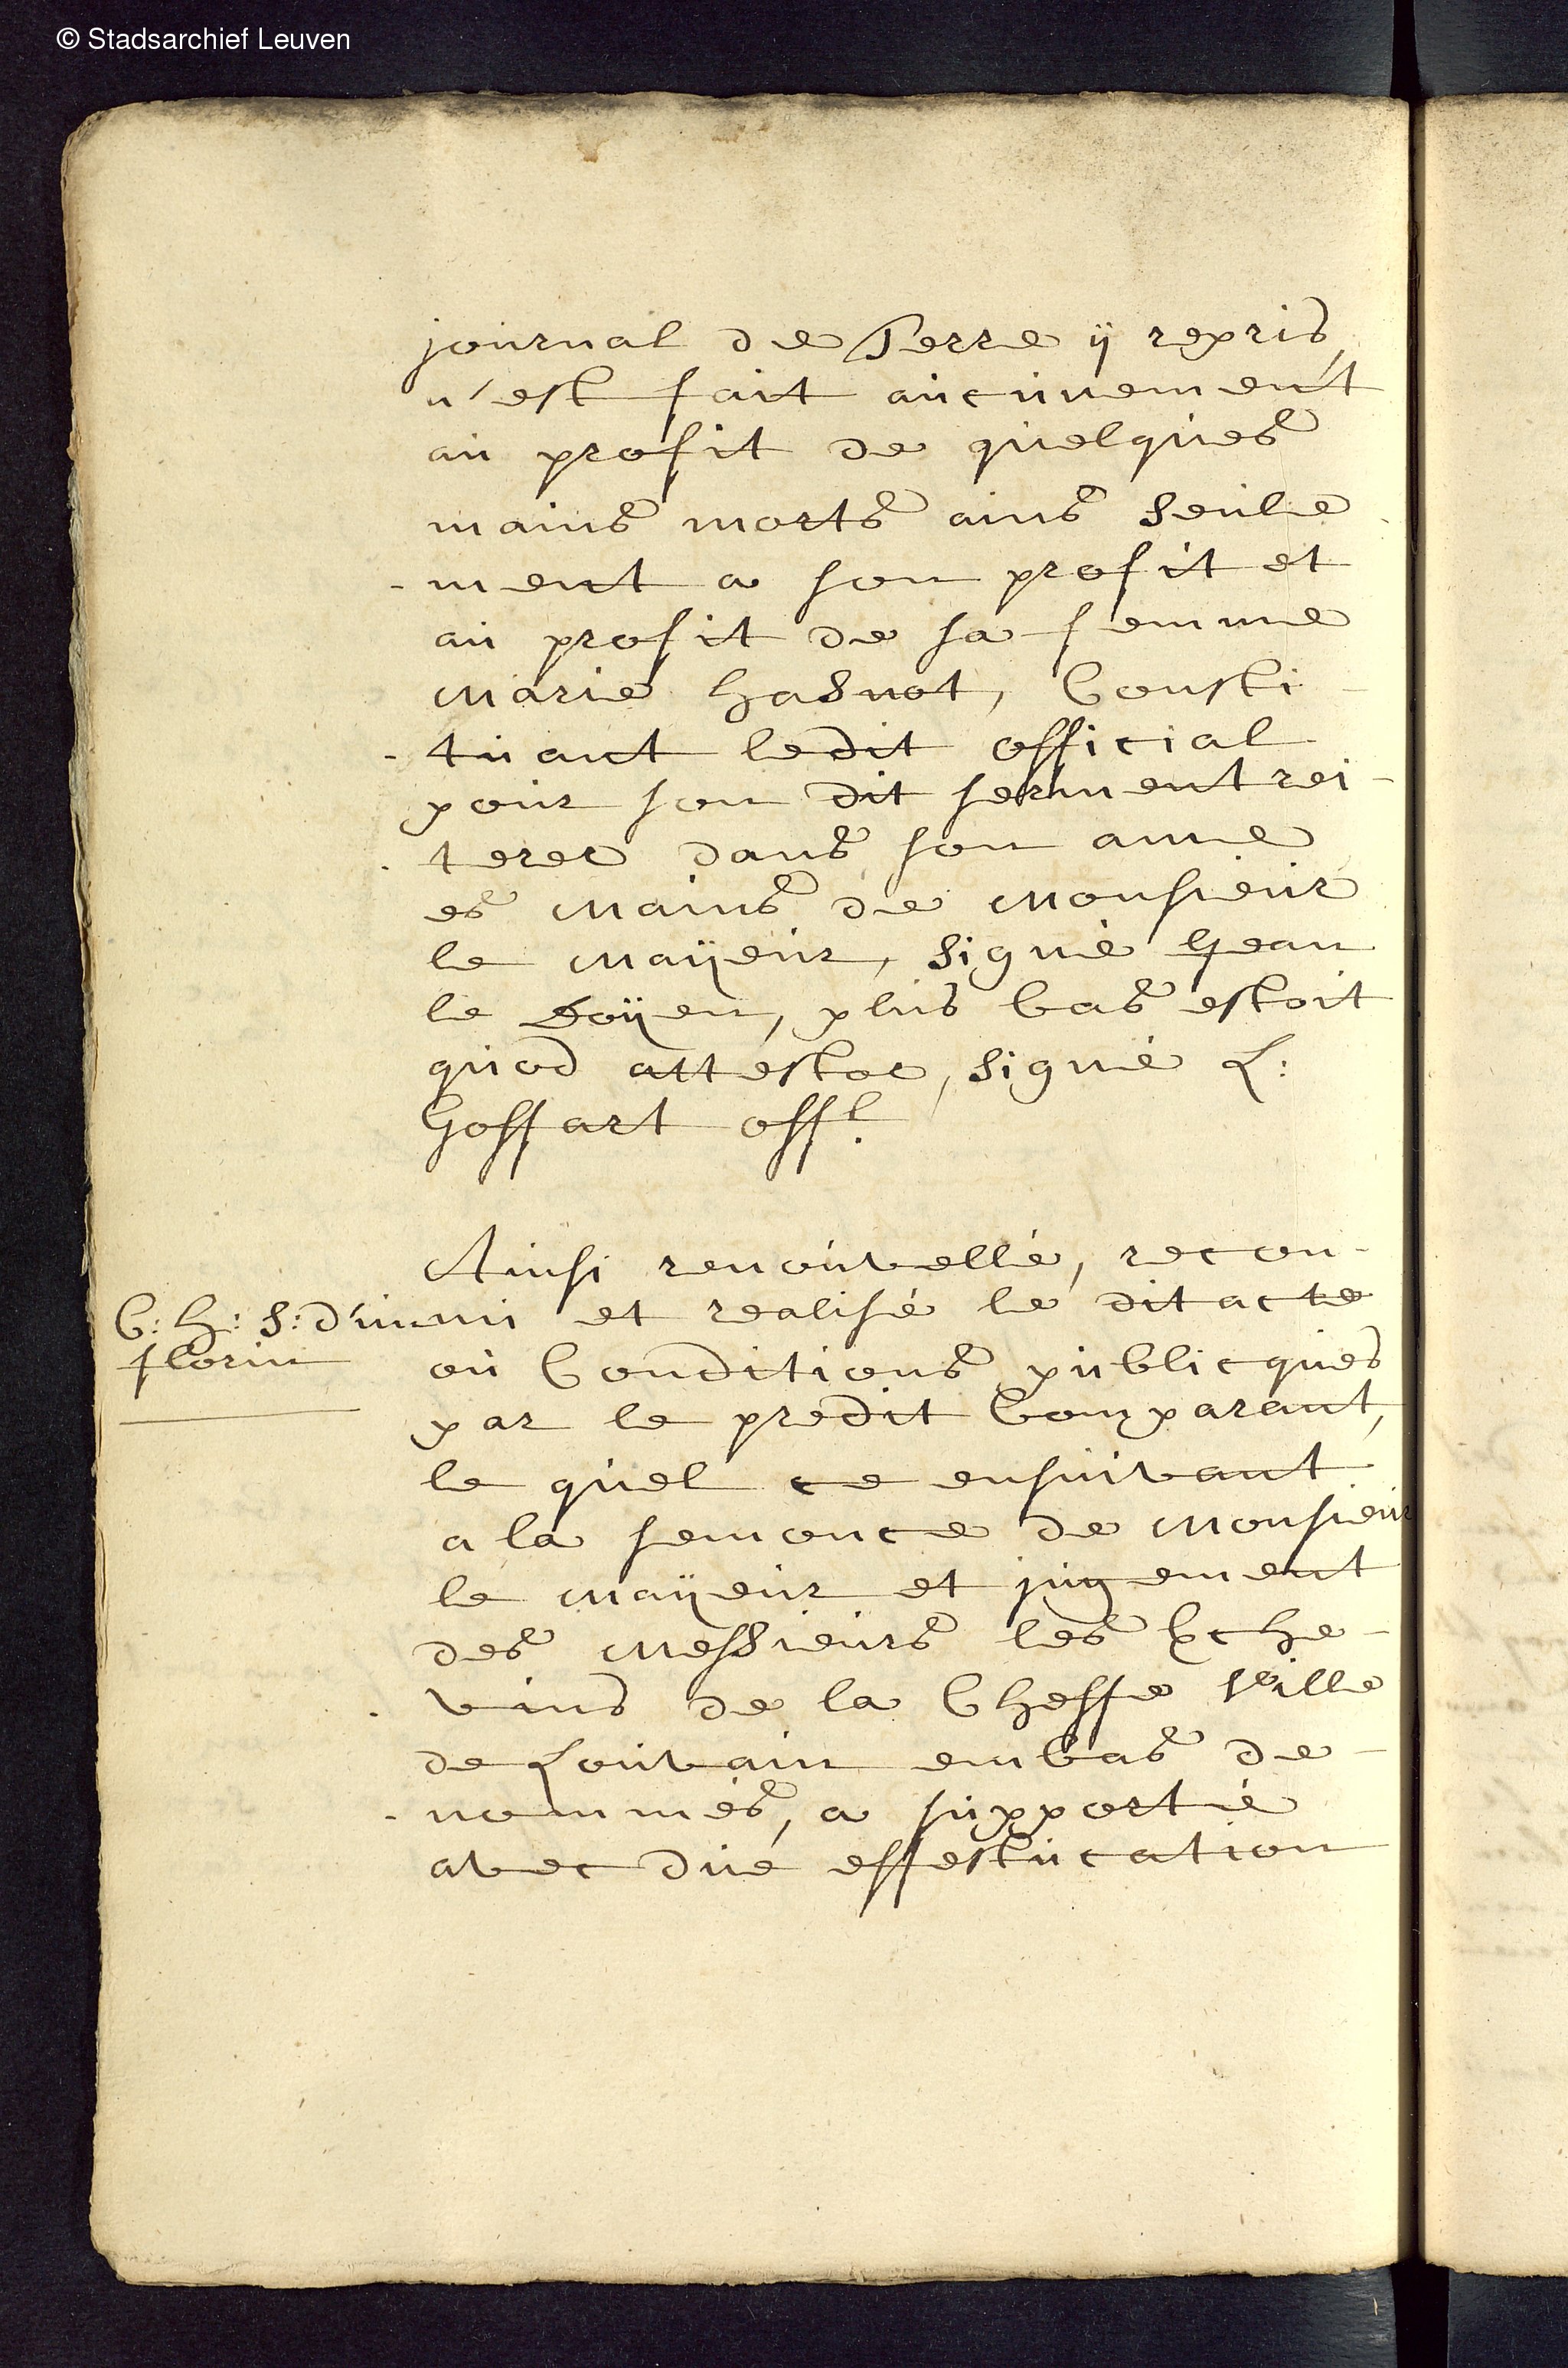 © Stadsarchief Leuven
journal de Terre ÿ repris
n'est fait aucunement
au profit de quelques
mains morts ains seule
-ment a son profit et
au profit de sa femme
Marie hasnot, Consti-
-tuant ledit official
pour son dit serment rei-
-terer dans son ame
es Mains de Monsieur
le Maÿeur, signé Jean
le Doÿen, plus bas estoit
quod attestor, signé L:
Goffart offl.
Ainsi renouvellé, recon-
C: H: S: d'un
florin
nu et realisé le dit acte
ou Conditions publicques
par le predit Comparant,
le quel ce ensuivant
a la semonce de Monsieur
le Maÿeur et jugement
des Messieurs les Eche-
-vins de la Cheffe Ville
de Louvain embas de-
-nommés, a supporté
avec due effestucation